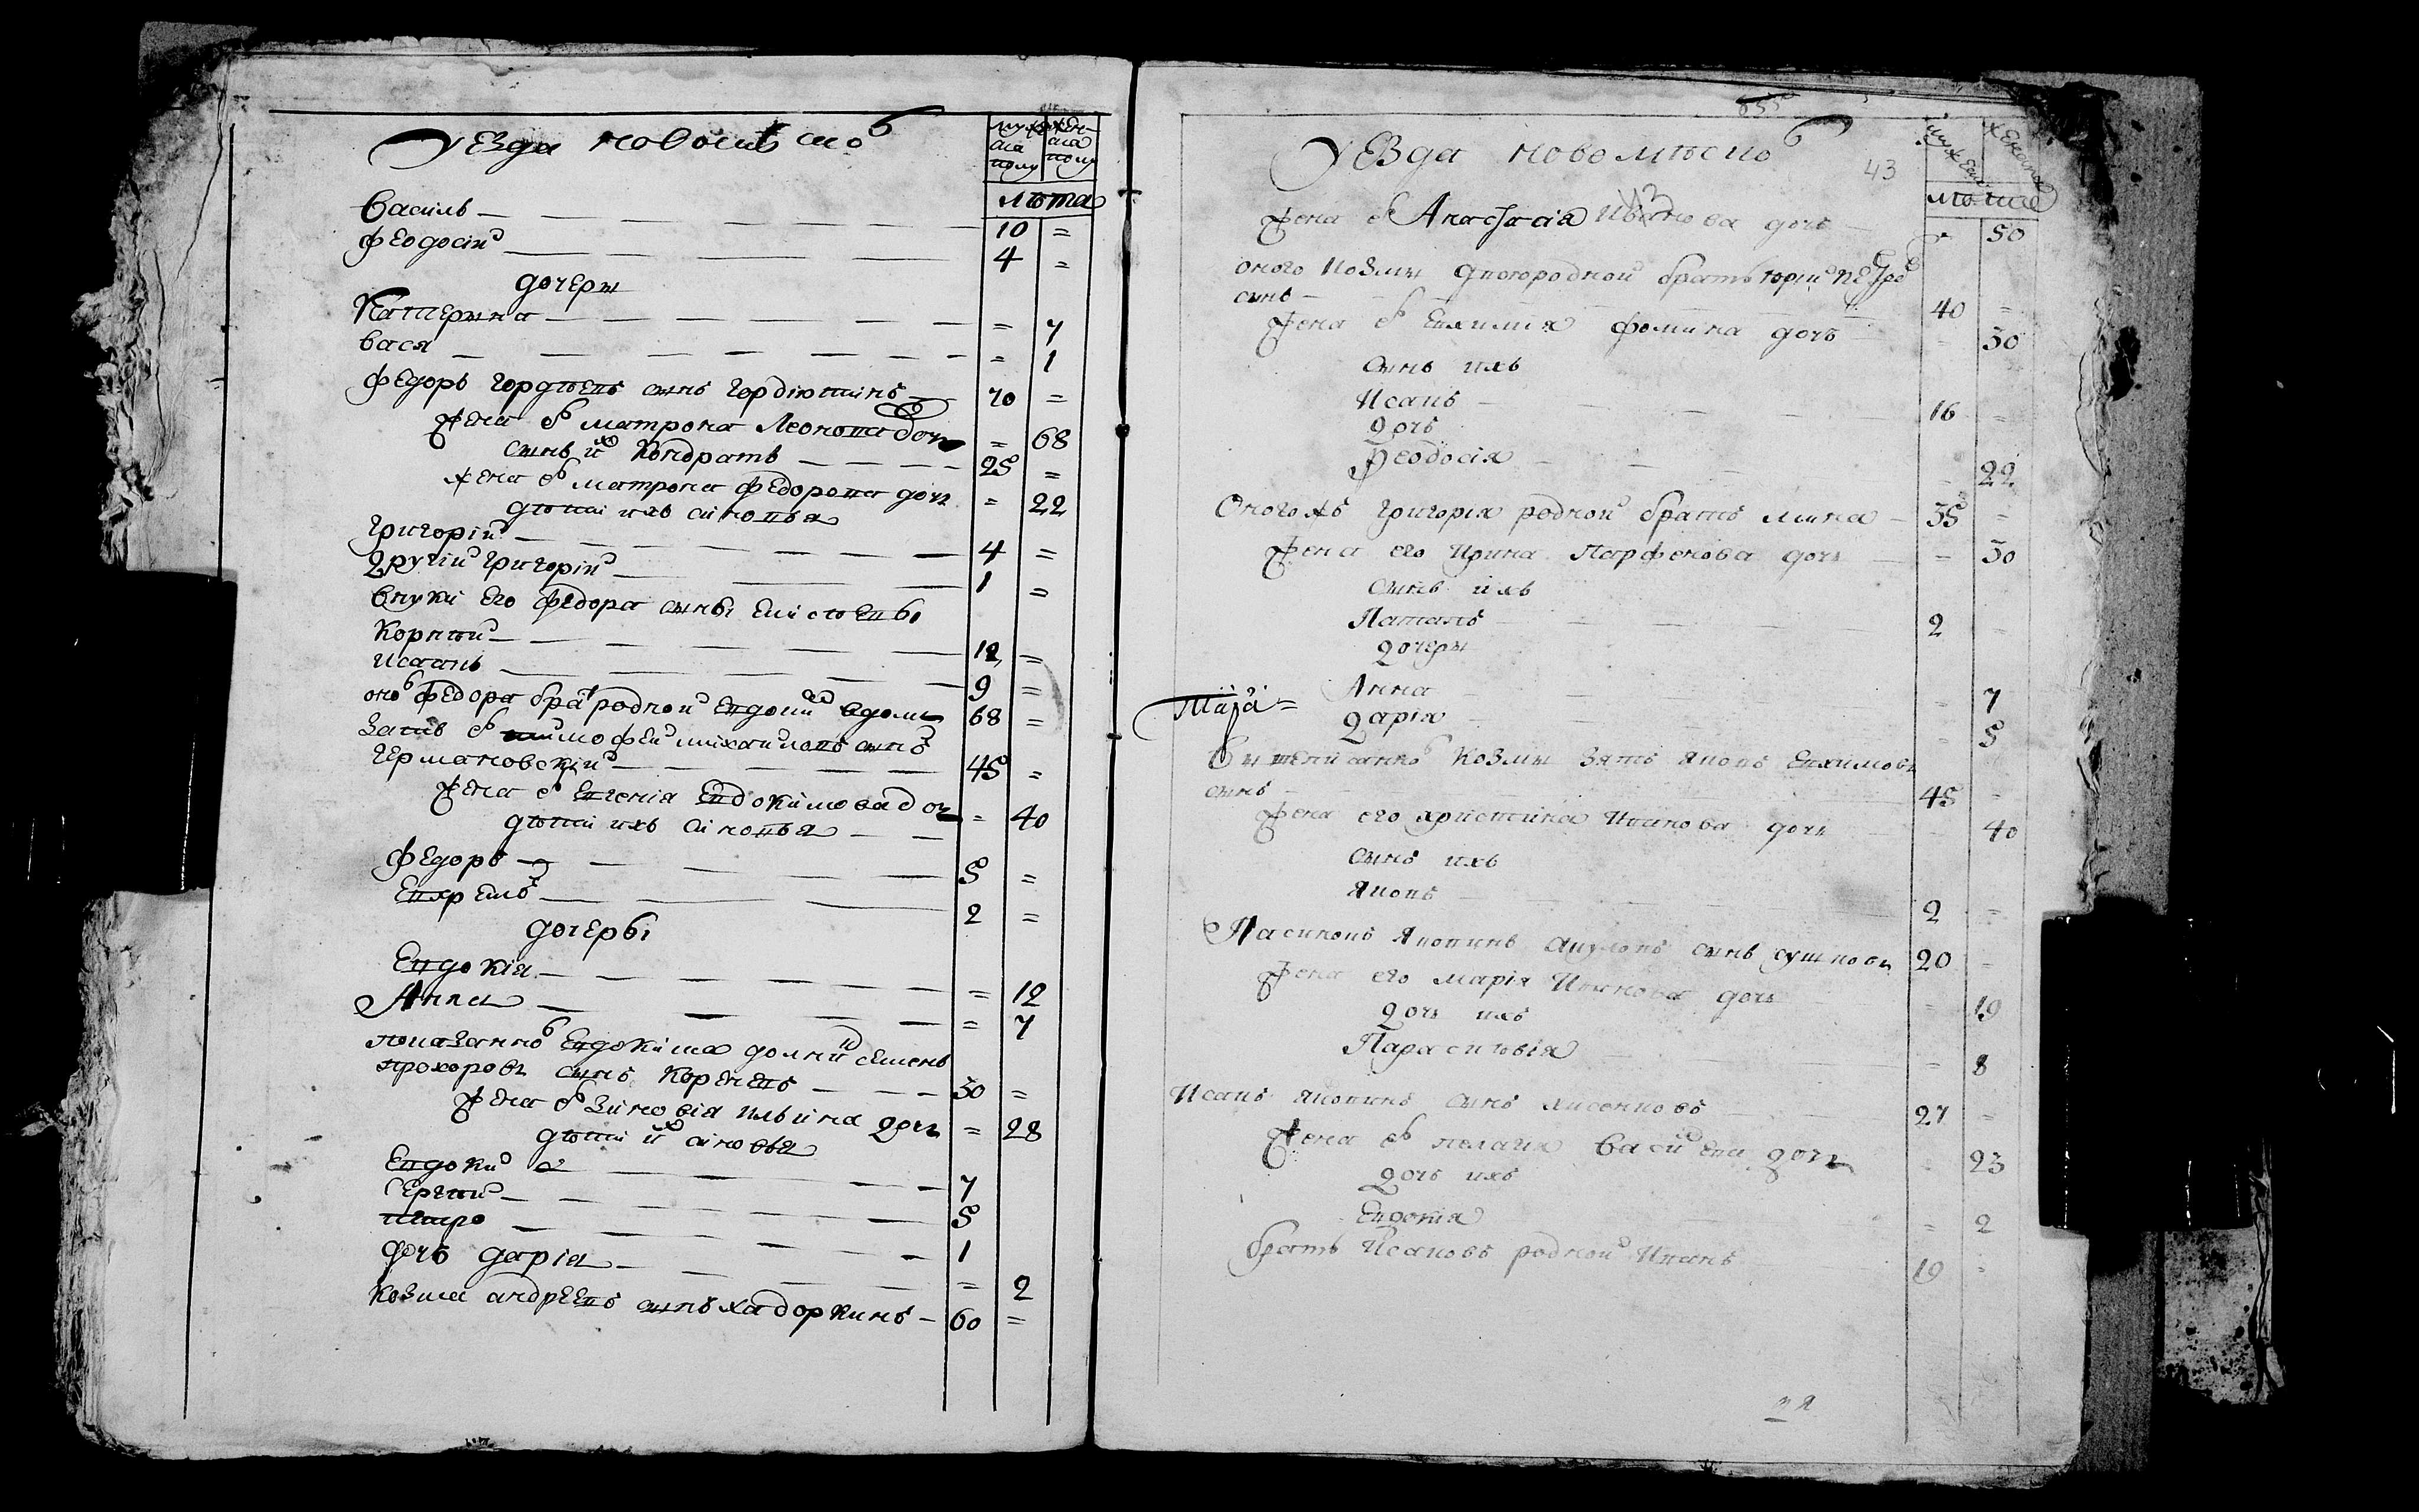 Уезда новомѣс го
муж ска полу
жен ска полу
лѣта
Василь — 10 =
Феодосий — 4 =
дочеры
Катерына — = 7
Вася — = 1
Федоръ Гордѣевъ сынъ Гордіютинъ — 70 =
жена ег Матрона Леонова доч = 68
сынъ их Кондратъ — 25 =
жена ег Матрона Федорова дочь = 22
дѣти ихъ сіновья
Григорій — 4 =
Другій Григорій — 1 =
Внуки его Федора сыны
Корнѣй — 12 =
Исаанъ — 9 =
оного Федора брат родной Евдоким вдовъ 68 =
Зять ег Тимофей Михайловъ сынъ
Германовскій — 45 =
жена ег Евгенія Евдокимова доч = 40
дѣти ихъ сіновья —
Федоръ — 5 =
Евхремъ — 2 =
дочеры
Евдокія — = 12
Анна — = 7
показанного Евдокима Семенъ
Прохоровъ сынъ Кореневъ — 30 =
жена ег Зіновія Ильина дочь = 28
дѣти их сіновья
Евдоким — 7
Сергѣй — 5
Петро — 1
Дочь Дарія — = 2
Козма Андреевъ сынъ Хадоркинъ — 60 =
Уезда новомѣско го
43
лѣта
жена ег Анастасія Иванова дочь — 50
оного Козмы двоюродной братъ Юрій Петро
сынъ — 40 =
жена ег Евхимія Фомина дочь 30
сынъ ихъ
Исаакъ — 16 =
дочь
Феодосія — 22
Оногожъ Григорія родной братъ Мина — 35 =
жена его Ирина Парфенова дочь — = 30
сынъ ихъ
Потапъ — 2
дочеры
Анна — 7
Дарія — 5
Вышеписанного Козмы зять Яковъ Евхимовъ
сынъ — 45 =
жена его Христина Иванова дочь 40
сынъ ихъ
Яковъ — 2 =
сынъ 20
жена его Марія Иванова дочь = 19
дочь ихъ
Парасковія — = 8
Исакъ Яковинъ сынъ Лисенковъ 27 =
жена ег Пелагія дочь 23
дочь ихъ
Евдокія = 2
братъ Исаковъ родной Иванъ 19 =